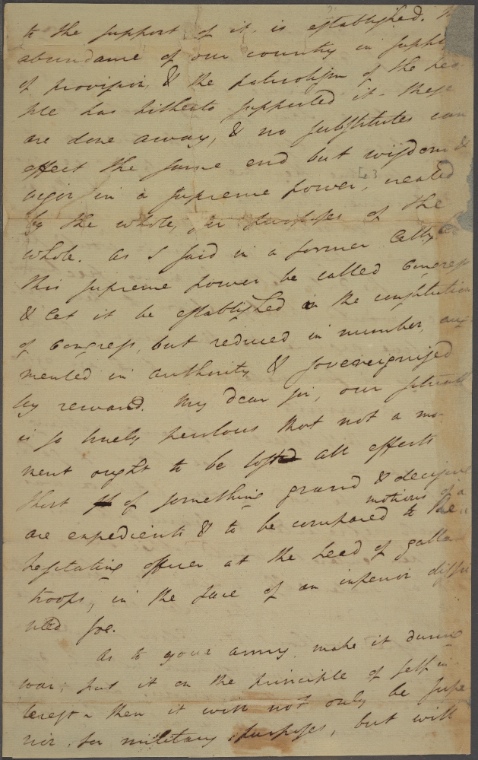 to the support of it is established. The
abundance of our country in supplies
of provision, & the patriotism of the peo
ple has hitherto supported it. these
are done away, & no substitutes can
effect the same end but wisdom &
vigor in a supreme power, created
by the whole, for purposes of the
whole. As I said in a former letter
this supreme power be called Congress
& let it be established on the constitution
of Congress, but reduced in number, aug
mented in authority &
by reward. My dear sir, our situation
is so truly perilous that not a mo
ment ought to be lost all efforts
short of something grand & decisive
are expedients & to be compared to the motions of a
hesitating officer at the head of galla
troops, in the face of an inferior
foe.
As to your army make it during
war, put it on the principle of self in
terest & then it will not only be supe
rior for military purposes, but will